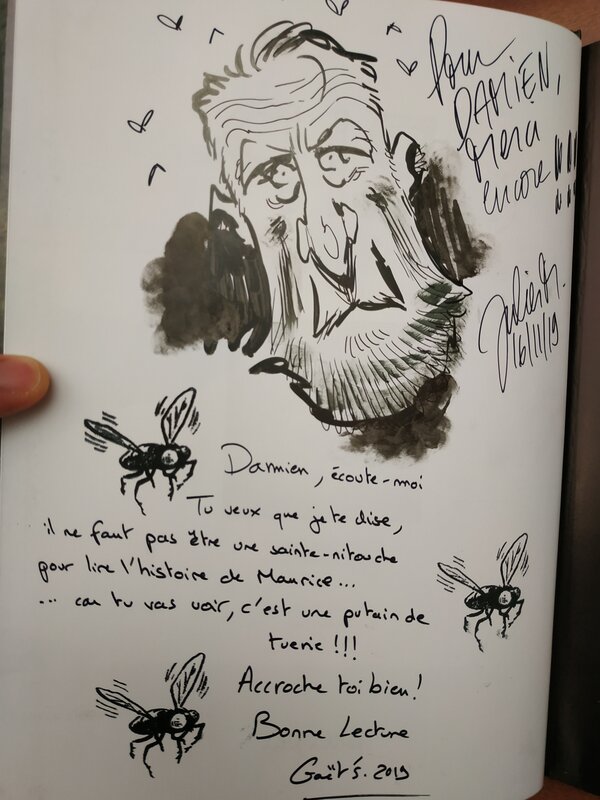 Pour
DAMIEN,
Merci
encore !!!
Julien M.
16/11/19
Damien, écoute-moi
Tu veux que je te dise,
il ne faut pas être une sainte-nitouche
pour lire l'histoire de Maurice...
... car tu vas voir, c'est une putain de
tuerie !!!
Accroche toi bien!
Bonne Lecture
Gaët's. 2019